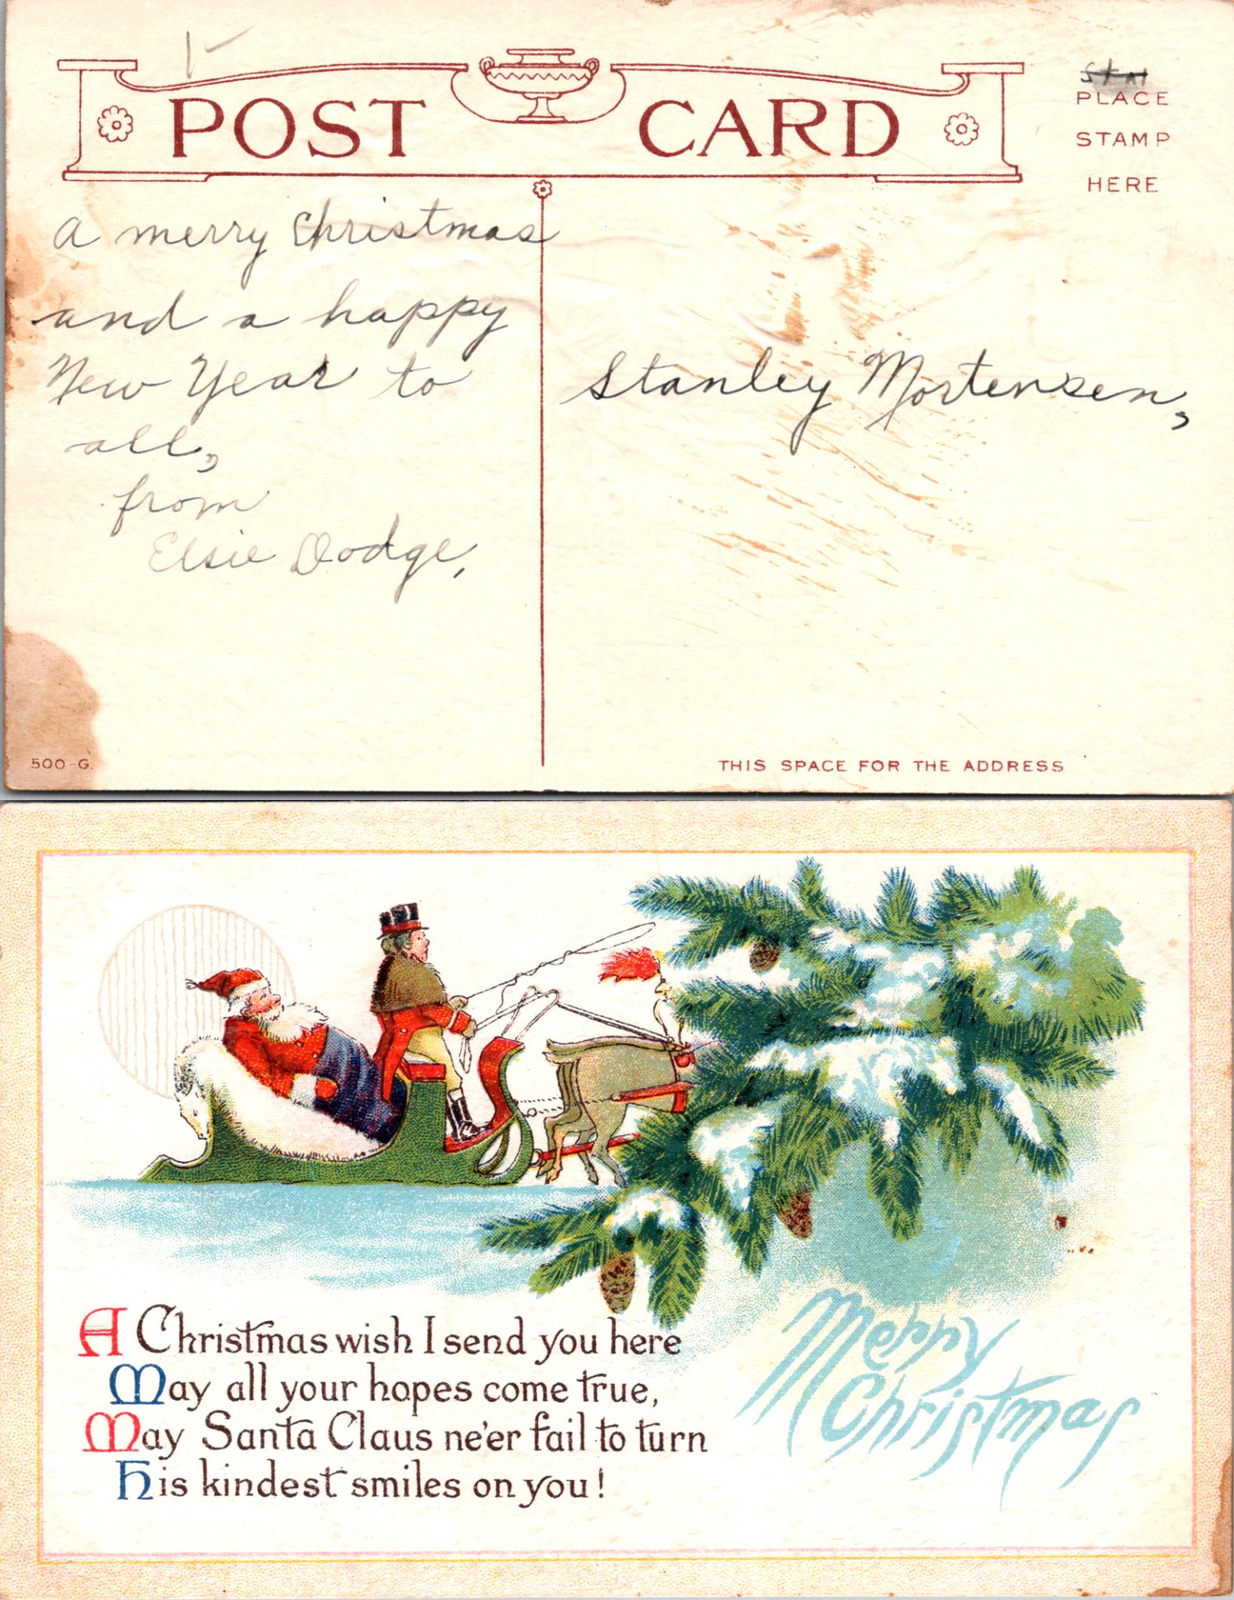 POST CARD
PLACE
STAMP
HERE
a merry Christmas
and a happy
New Year to
all,
from
Elsie Dodge,
Stanley Mortensen,
500-G.
THIS SPACE FOR THE ADDRESS
A Christmas wish I send you here
May all your hopes come true,
May Santa Claus ne'er fail to turn
His kindest smiles on you!
Merry
Christmas